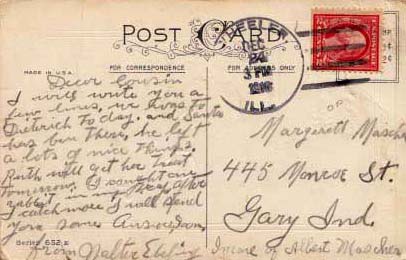 POST CARD
WHEELER
DEC
24
3 PM
ILL.
FOR CORRESPONDENCE
FOR ADDRESS ONLY
MADE IN U.S.A.
Dear Cousin
I will write you a
few lines, we
Dieterich to day. and Santa
has ben there, he left
a lots of nice things.
Ruth will get her treat
tomorrow. I caught one
rabbit in my trap after
I catch more I will send
you some. Answer Soon,
from Walter
Series 652 E
Margarett
445 Monroe St.
Gary Ind.
In care of Albert